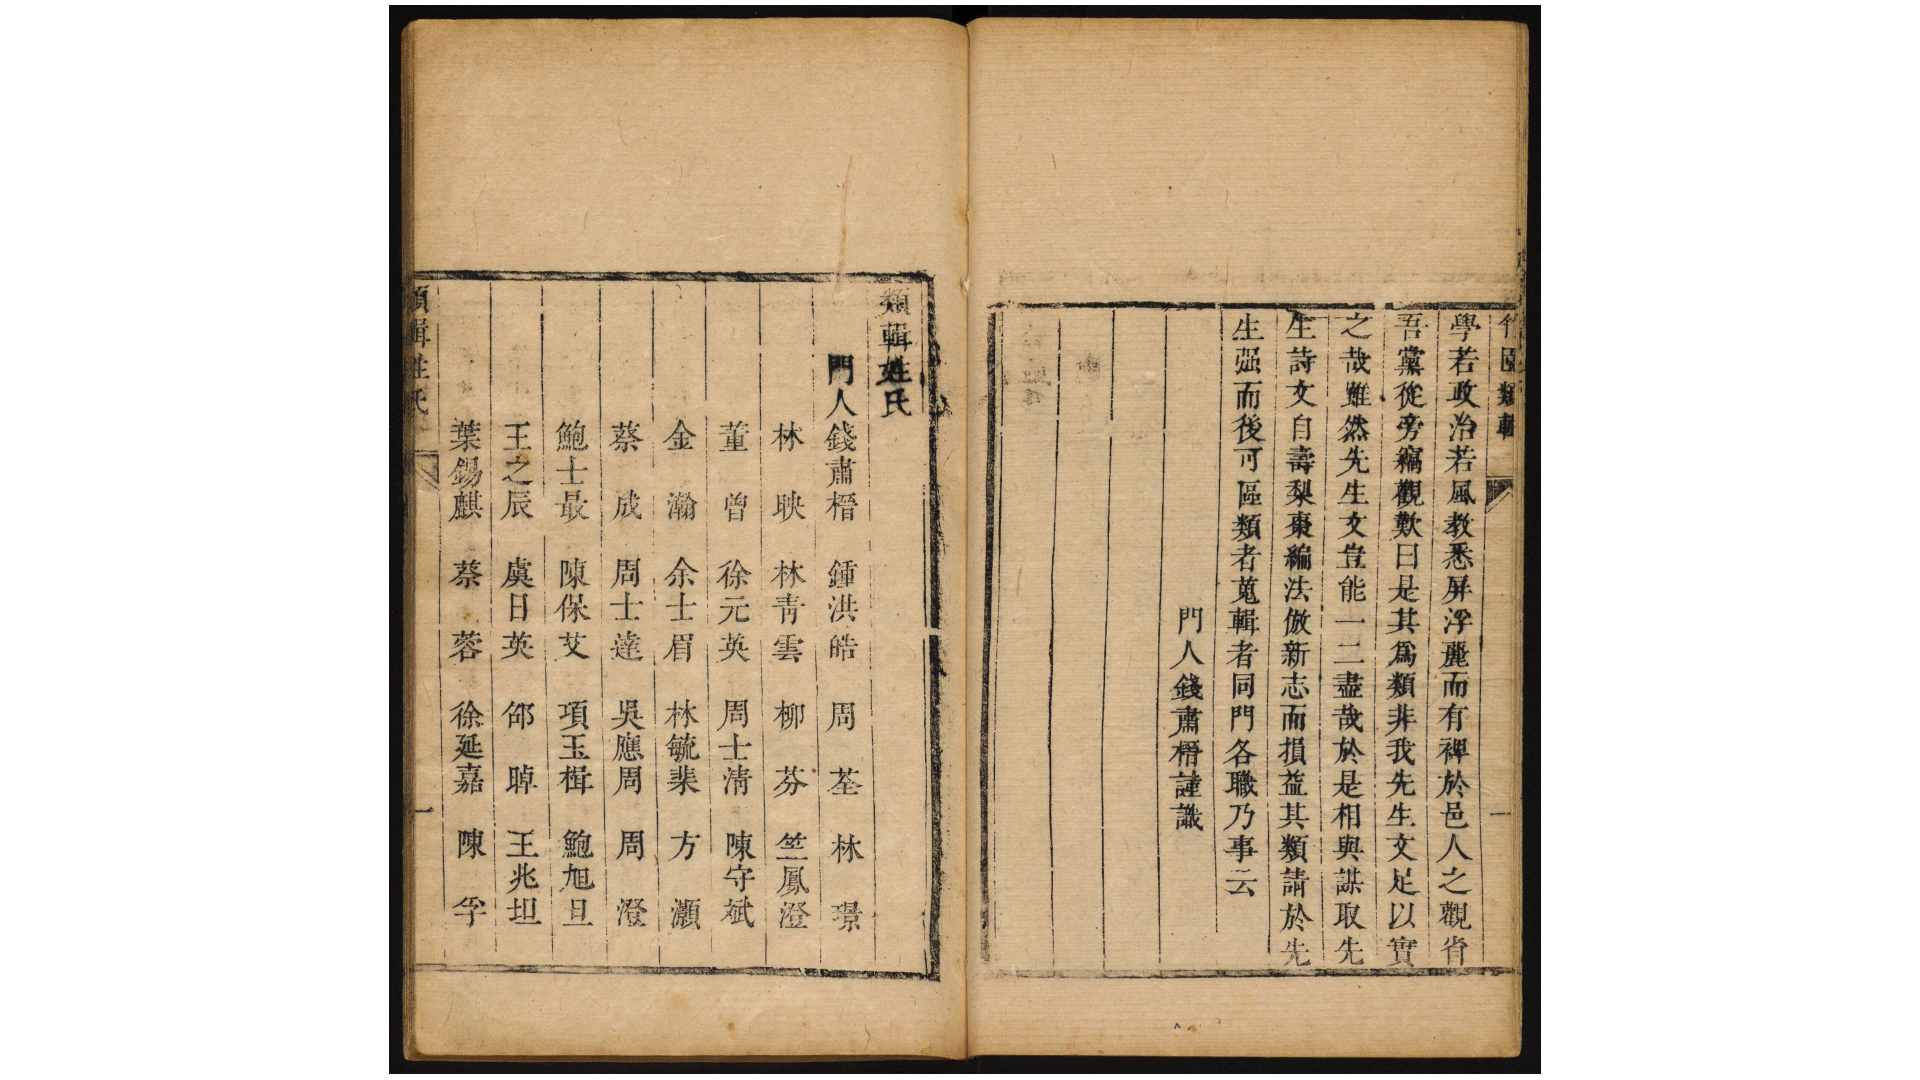 竹園類輯
一
學若政治若風教悉屏浮麗而有裨於邑人之觀省
吾黨從旁竊觀歎曰是其爲類非我先生文足以實
之哉雖然先生文豈能一二盡哉於是相與謀取先
生詩文自壽梨棗編法倣新志而損益其類請於先
生强而後可區類者蒐輯者同門各職乃事云
門人錢肅𣙗謹識
類輯姓氏
門人錢肅𣙗 鍾洪皓 周荃 林璟
林映 林青雲 柳芬 竺鳳澄
董曾 徐元英 周士清 陳守斌
金瀚 余士眉 林毓棐 方灝
蔡成 周士達 吳應周 周澄
鮑士最 陳保艾 項玉楫 鮑旭旦
王之辰 虞日英 邰晫 王兆坦
葉錫麒 蔡蓉 徐延嘉 陳孚
類輯姓氏
一